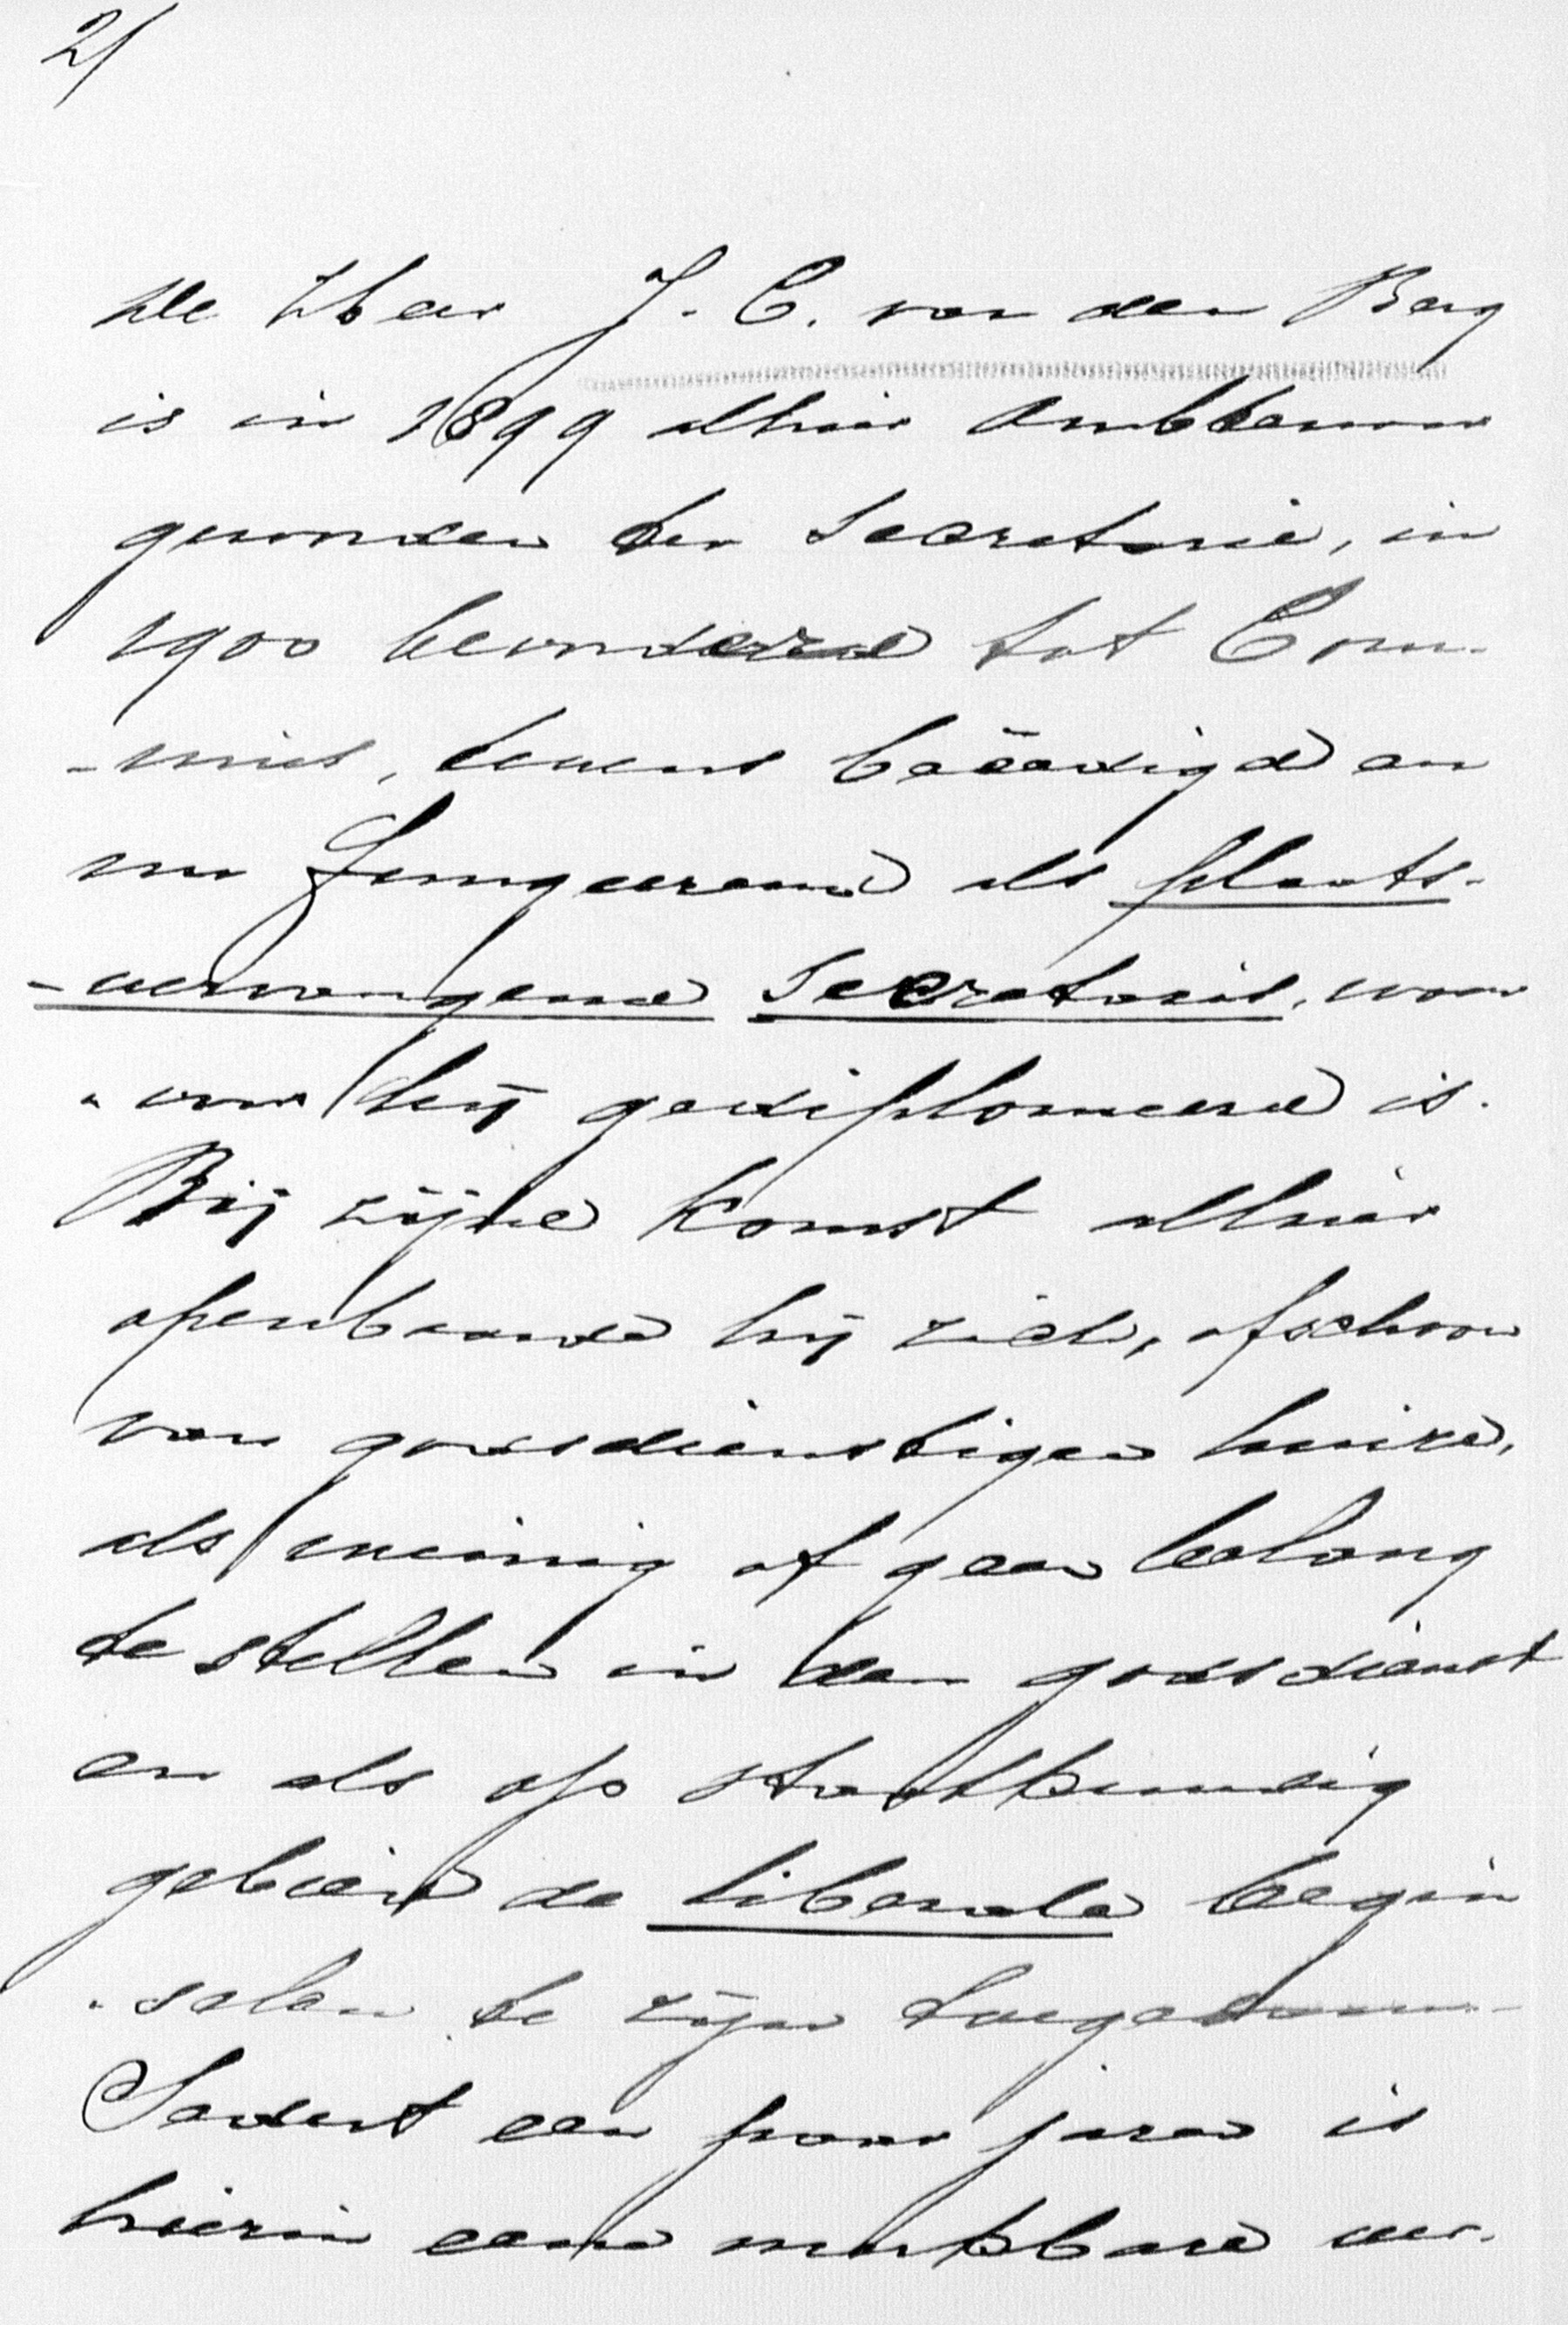 2/
De Heer J. C. van den Berg
is in 1899 alhier Ambtenaar
geworden ter Secretarie, in
1900 bevorderd tot Com-
-mies, tevens beëedigd en
nu fungeerend als plaats-
-vervangend Secretaris, waar
-voor hij gediplomeerd is.
Bij zijne komst alhier
openbaarde hij zich, ofschoon
van godsdienstigen huize,
als weinig of geen belang
te stellen in den godsdienst
en als op staatkundig
gebied de liberale begin
-selen te zijn toegedaan.
Sedert een paar jaren is
hierin eene merkbare ver-